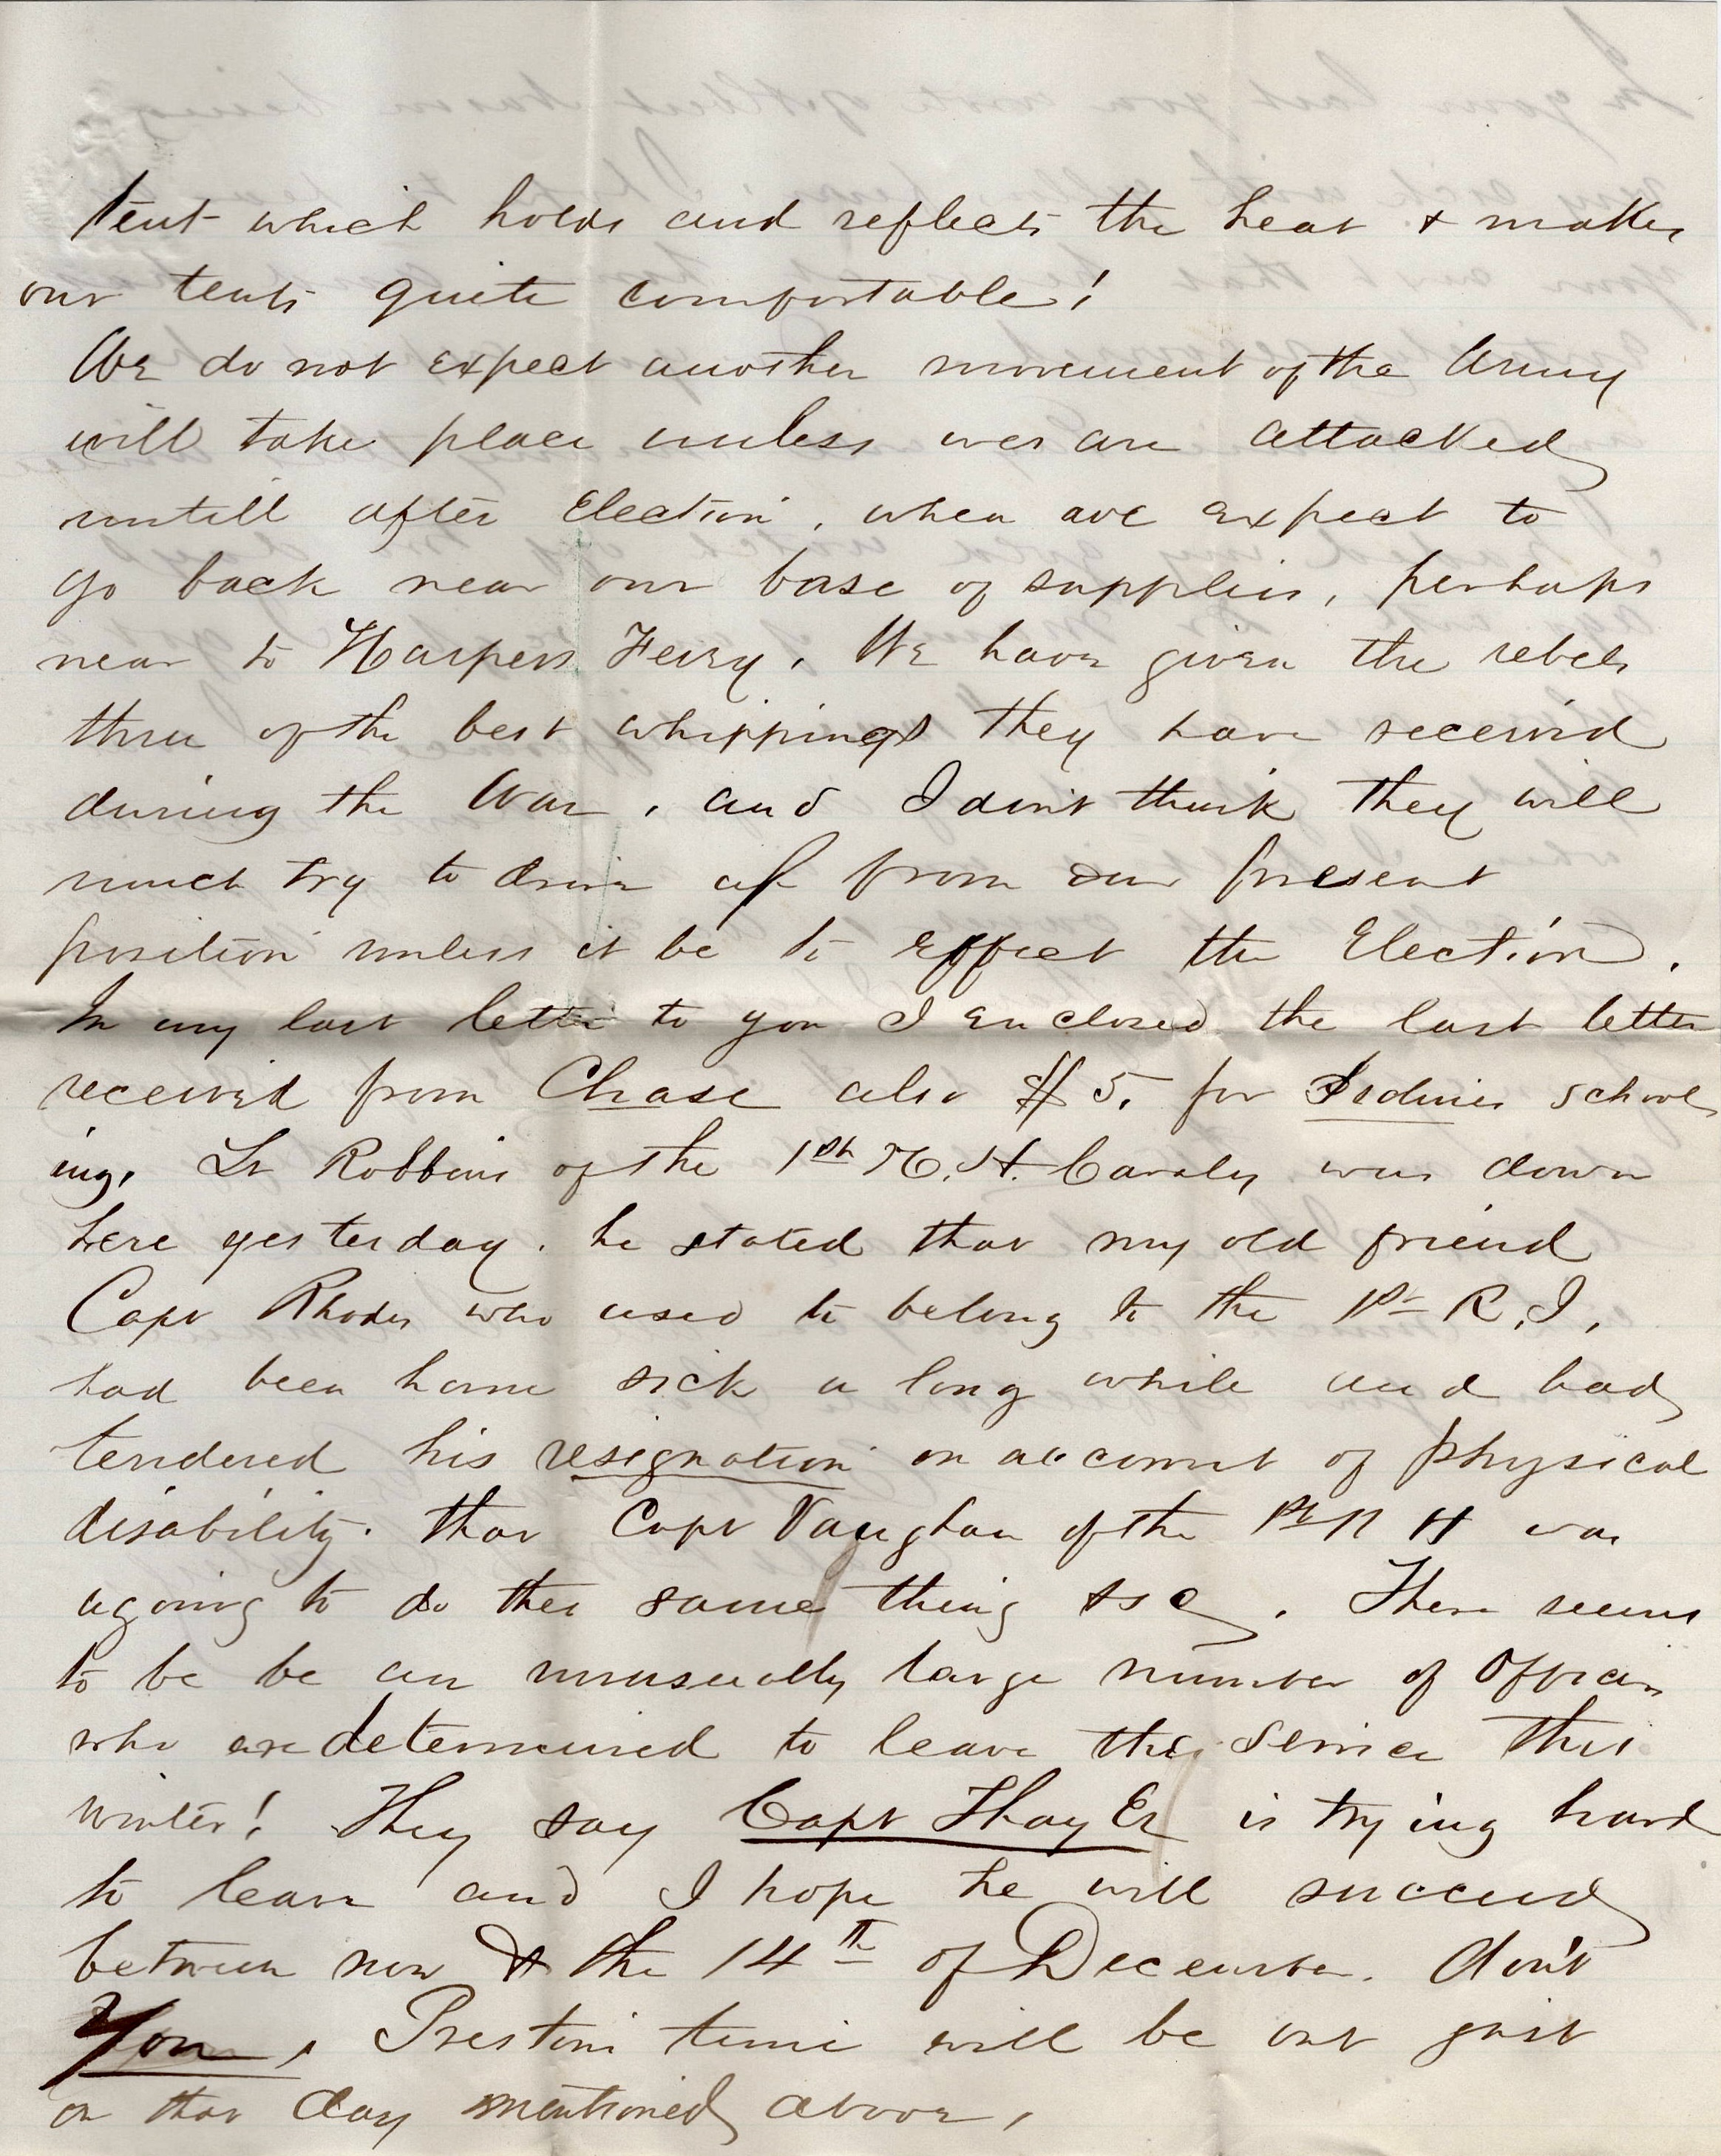 tent which holds and reflects the heat & makes
our tents quite comfortable!
We do not expect another movement of the Army
will take place unless we are attacked
untill after Election, when we expect to
go back near our base of supplies, perhaps
near to Harpers Ferry. We have given the rebels
three of the best whippings they have received
during the War, and I don't think they will
much try to drive us from our present
position unless it be to effect the Election.
In my last letter to you I enclosed the last letter
received from Chase also $5. for school
ing. Lt Robbins of the 1st N.H. Cavaly was down
here yesterday. he stated that my old friend
Capt Rhodes who used to belong to the 1st R.I.
had been home sick a long while and had
tendered his resignation on account of physical
disability. that Capt Vaughan of the 1st N H was
agoing to do the same thing &c. There seems
to be be an unusually large number of Officers
who are determined to leave the Service this
winter! They say Capt Thayer is trying hard
to leave and I hope he will succeed
between now & the 14th of December. don't
You, Prestons time will be out just
on that day mentioned above,